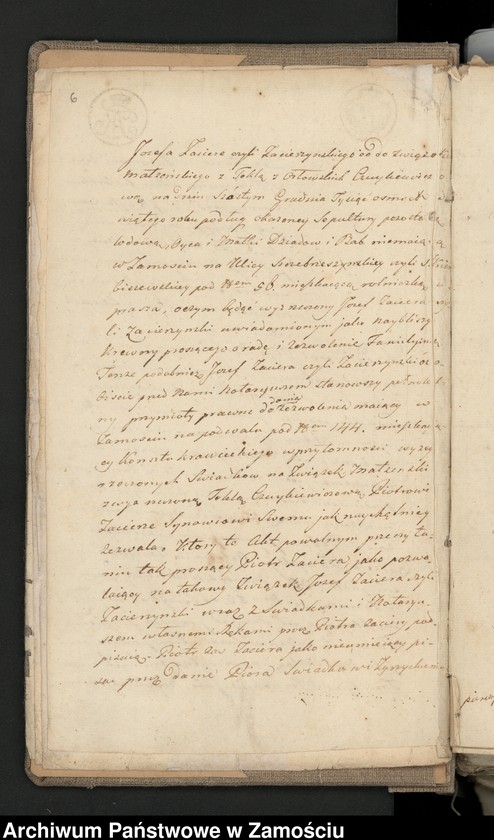 6
Jozefa Zaciere czyli Zacierzynskiego od do związku
Małżeńskiego z Teklą z Orłowskich Czuykiewiczo
wą na dniu Szóstym Grudnia Tysiąc osmset
ego roku podług okazaney Sepultury pozostałą
wdową, Oyca i Matki Dziadow i Bab niemaiącą
w Zamosciu na Ulicy Szczebrzeszynskiey czyli
pod Nrem 56. mieszkaiącą
prasza, oczym będąc wyż rzeczony Jozef Zaciera
li Zacierzynski uwiadomionym jako naybliższy
Krewny proszącego o radę i zezwolenie Familyine
Tenże podobnież Jozef Zaciera czyli Zacierzynski oso
biście przed Nami Notaryuszem stanowszy
ny przymioty prawne do dania zezwolenia maiący w
Zamosciu na podwalu pod Nrem 144. mieszkaią
cy Konsztu krawieckiego w przytomnosci wyżey
rzeczonych Swiadkow na Związek Małżenski
z wyż rzeczoną Teklą Czuykiewiczową, Piotrowi
Zacierze Synowcowi Swemu jak naychętniey
zezwala. Ktory to Akt po przeczyta
niu tak proszący Piotr Zaciera jako pozwa
laiący na takowy Związek Jozef Zaciera czyli
Zacierzynski wraz z Swiadkami i Notaryu
szem własnemi Rękami prócz Piotra Zaciery pod
pisuią. Piotr zaś Zaciera jako nieumieiący pi
sać przez danie Piora Swiadkowi
Archiwum Państwowe w Zamościu